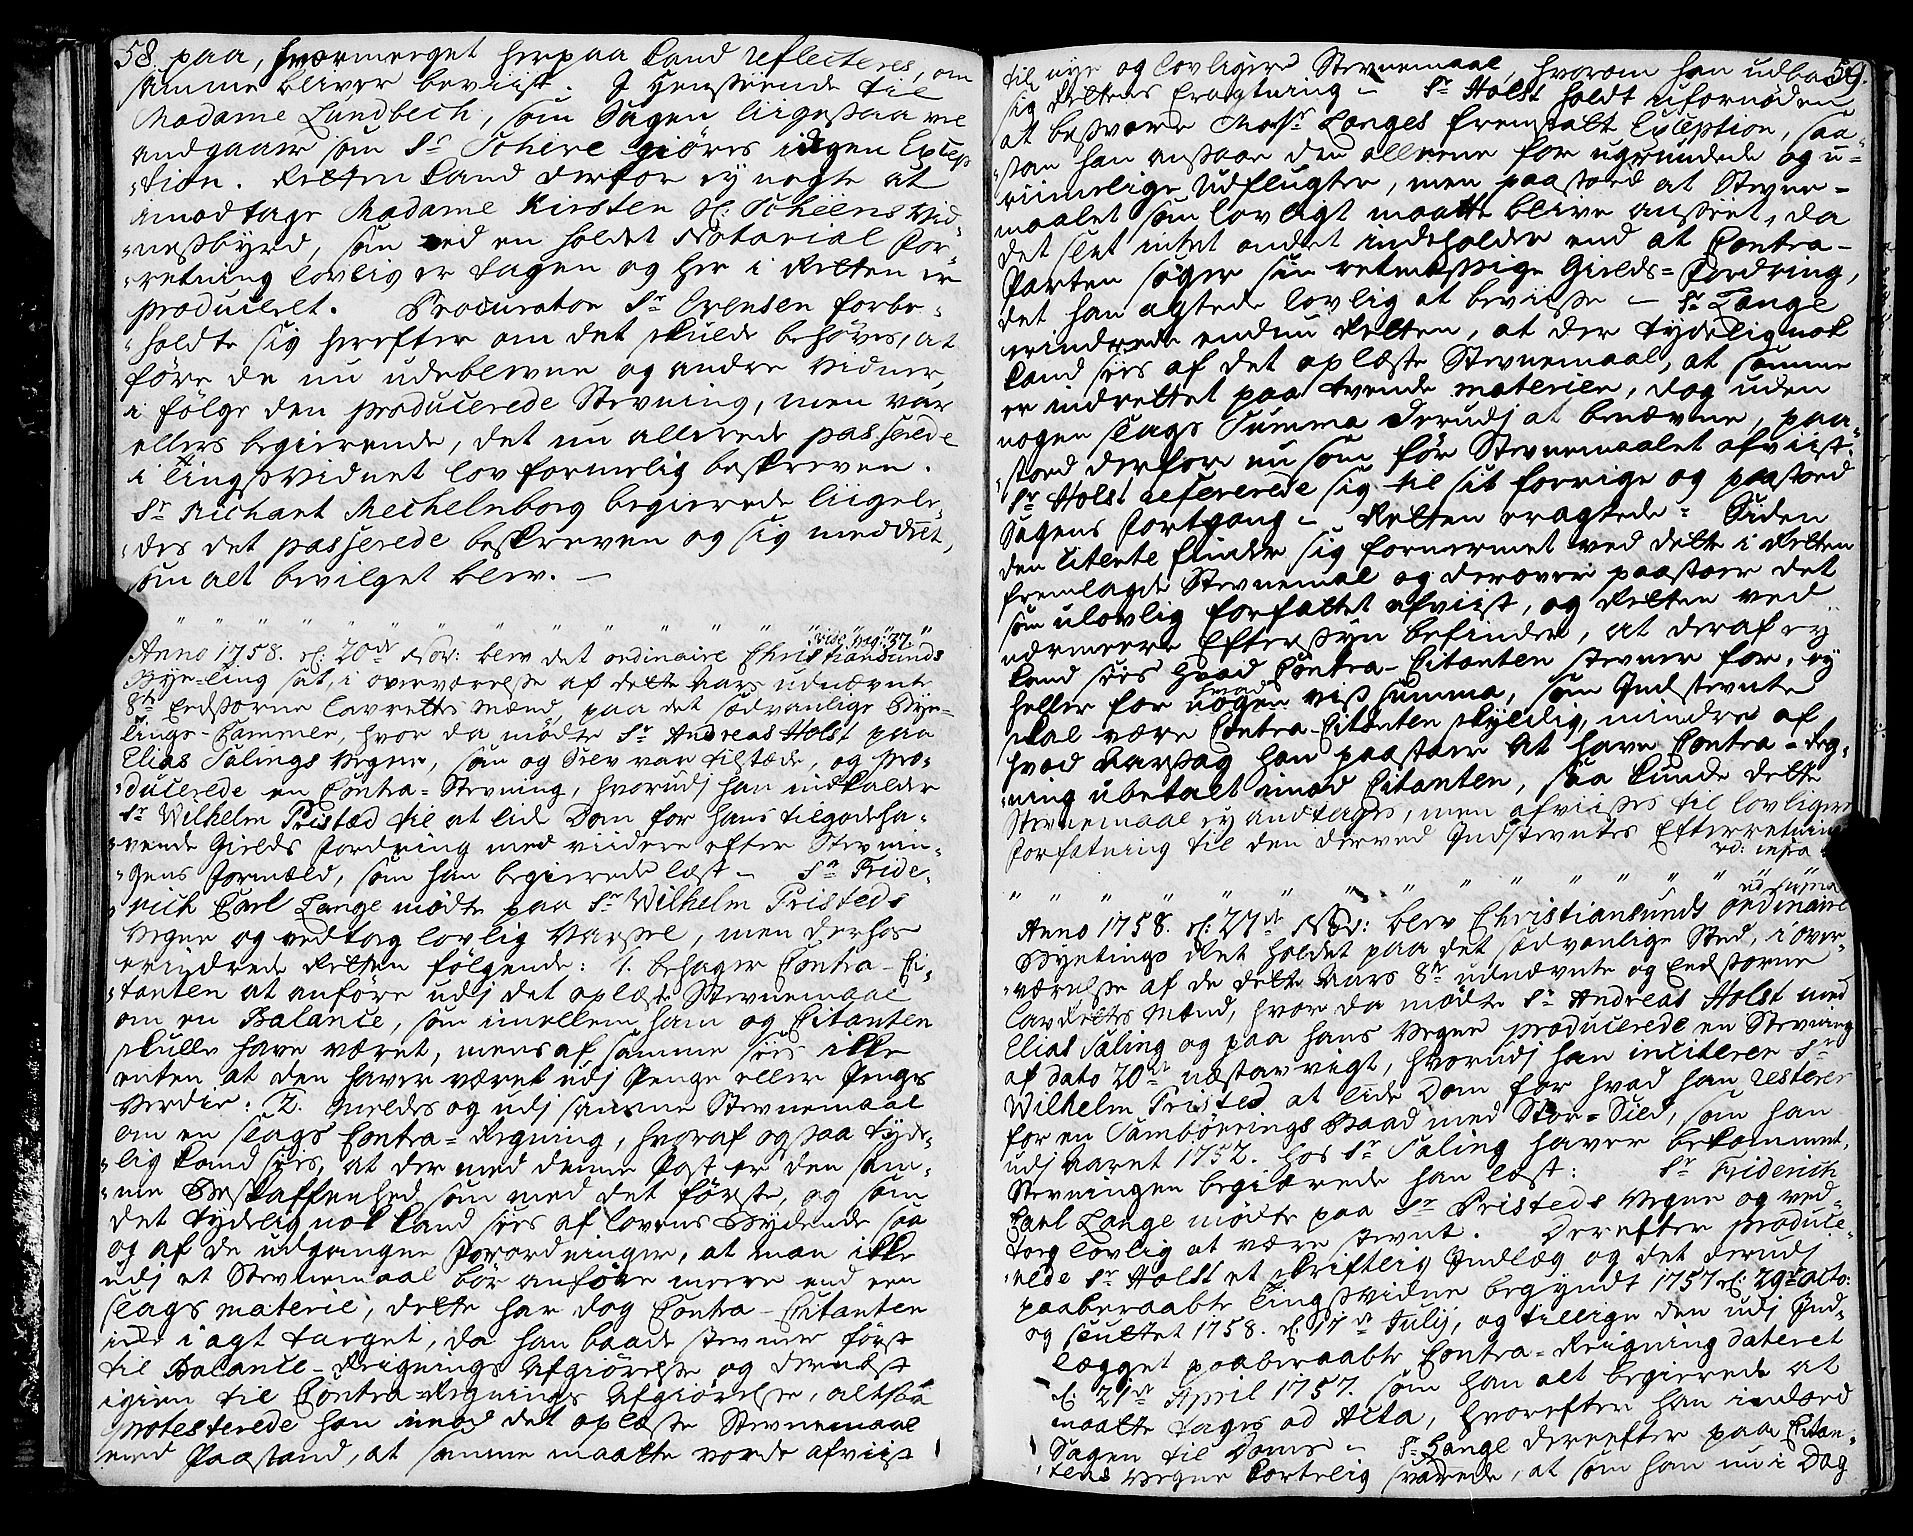 58. paa, hvormeget herpaa kand reflecteres, om
samme bliver beviist. I Henseende til
Madame Lundbech, som Sagen liigesaa vel
andgaaer som Sr Schive giöres ingen Excep
-tion. Retten kand derfor ej negte at
imodtage Madame Kirsten Sl: Scheens Vid-
-nesbyrd, som ved en holdet Notarial For-
-retning lovlig er tagen og her i Retten er
produceret. Procurator Sr Örensen forbe-
-holdte sig herefter om det skulde behöves, at
före de nu udeblevne og andre Vidner,
i fölge den producerede Stevning, men var
ellers begierende, det nu allerede passerede
i TingsVidnet lovformelig beskreven.
Sr Richart Mechelnborg begierede liigele-
-des det passerede beskreven og sig meddeelt,
som alt bevilget blev. —
vise pag: 37
Anno 1758. d: 20de Nov: blev det ordinaire Christiansunds
Bye-Ting sat, i overværelse af dette aars udnævnte
8te Eedsorne Lavrettes Mænd, paa det sædvanlige Bye-
Tings-Kammer, hvor da mödte Sr Andreas Holst paa
Elias Salings Vegne, som og Selv var tilstæde, og pro-
-ducerede en Contra-Stevning, hvorudj han indkalder
Sr Wilhelm Pristed til at lide Dom for hans tilgodeha-
-vende Gields Fordring med viidere efter Stevnin-
-gens Formæld, som han begierede læst — Sr Fride-
-rich Carl Lange mödte paa Sr Wilhelm Pristeds
Vegne og vedtog lovlig Varsel, men derhos
erindrede Retten fölgende: 1. behager Contra-Ci-
-tanten at anföre udj det oplæste Stevnemaal
om en Balance, som imellem ham og Citanten
skulle have været, mens af samme sees ikke
enten at den haver været udj Penge eller Penges
Verdie: 2. meldes og udj samme Stevnemaal
om en slags Contra-Regning, hvoraf ogsaa tyde-
-lig kand sees, at der med denne Post er den sam-
-me Beskaffenhed som med det förste, og som
det tydelig nok kand sees af Lovens Bydende saa
og af de udgangne Forordninger, at man ikke
udj et Stevnemaal bör anföre meere end een
slags materie, dette har dog Contra-Citanten
icke i agt taget, da han baade stevner först
til Balance-Reignings Afgiörelse og dernæst
igien til Contra-Regnings Afgiörelse, altsaa
protesterede han imod det oplæste Stevnemaal
med Paastand, at samme maatte vorde afviist
59.
til nye og lovligere Stevnemaal, hvorom han udbad
sig Rettens Eragtning — Sr Holst holdt ufornöden
at besvare Monsr Langes fremsatte Exception, saa-
-som han ansaae den alleene for ugrundede og u-
-riimelige Udflugter, men paastod at Stevne-
maalet som lovligt maatte blive anseet, da
det slet intet andet indeholder end at Contra-
Parten söger sin retmæssige Gields-Fordring,
det han agtede lovlig at beviise — Sr Lange
erindrede endnu Retten, at der tydelig nok
kand sees af det oplæste Stevnemaal, at samme
er indrettet paa tvende materier, dog uden
nogen slags Summa derudj at benævne, paa-
-stod derfor nu som för Stevnemaalet afviist.
Sr Holst refererede sig til sit forrige og paastod
Sagens Fortgang — Retten eragtede: Siden
den Citerte finder sig fornermet ved dette i Retten
fremlagde Stevnemaal og derover paastaar det
som ulovlig forfattet afviist, og Retten ved
nærmere Eftersyn befinder, at deraf ej
kand sees hvad Contra-Citanten stevner for, ej
heller for hvad nogen viss Summa, som Indstevnte
skal være Contra-Citanten skyldig, mindre af
hvad Aarsag han paastaaer at have Contra-Reg-
-ning ubetalt imod Citanten, saa kunde dette
Stevnemaal ej andtages, men afviises til lovligere
Forfatning til den derved Indstevntes Efterretning
vid: infra
vid: supra
Anno 1758. d: 27de Nov: blev Christiansunds ordinaire
Byetings Ret holdet paa det sædvanlige Sted, i over-
-værelse af de dette Aars 8te udnævnte og Eedsorne
LavRettes Mænd, hvor da mödte Sr Andreas Holst med
Elias Saling og paa hans Vegne producerede en Stevning
af dato 20de næstafvigt, hvorudj han inciterer Sr
Wilhelm Pristed at lide Dom for hvad han resterer
for en Samböerings Baad med Stor-Sild, som han
udj Aaret 1752. hos Sr Saling haver bekommet,
Stevningen begiærede han læst: Sr Friderich
Carl Lange mödte paa Sr Pristeds Vegne og ved-
-tog lovlig at være stevnt. Derefter produce-
-rede Sr Holst et skriftlig Indlæg og det derudj
paaberaabte Tingsvidne begyndt 1757 d: 29de Octo:
og sluttet 1758. d: 17de Julij, og tillige den udj Ind-
lægget paaberaabte Contra-Reigning dateret
d: 21de April 1757. som han alt begierede at
maatte tages ad Acta, hvorefter han indlod
Sagen til Doms — Sr Lange derefter paa Citan-
-tens Vegne kortelig svarede, at som han nu i Dag